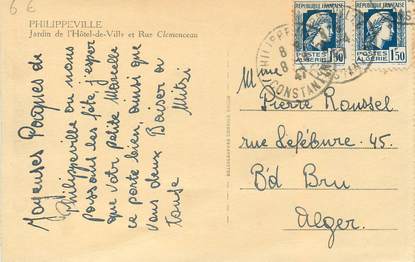 6 €
PHILIPPEVILLE
Jardin de l'Hôtel-de-Ville et Rue Clemenceau
Joyeuses Pâques de
Philippeville ou nous
passons les fête, j'esper
que votre petite Marcelle
ce porte bien, ainsi que
vous deux Baiser a
touse Mitzi
REPUBLIQUE FRANÇAISE
POSTES
ALGERIE
1,50
REPUBLIQUE FRANÇAISE
POSTES
ALGERIE
1,50
PHILIPPE
8
47
CONSTAN
Mme Pierre Roussel
rue Lefébure . 45
Bd Bru
Alger.